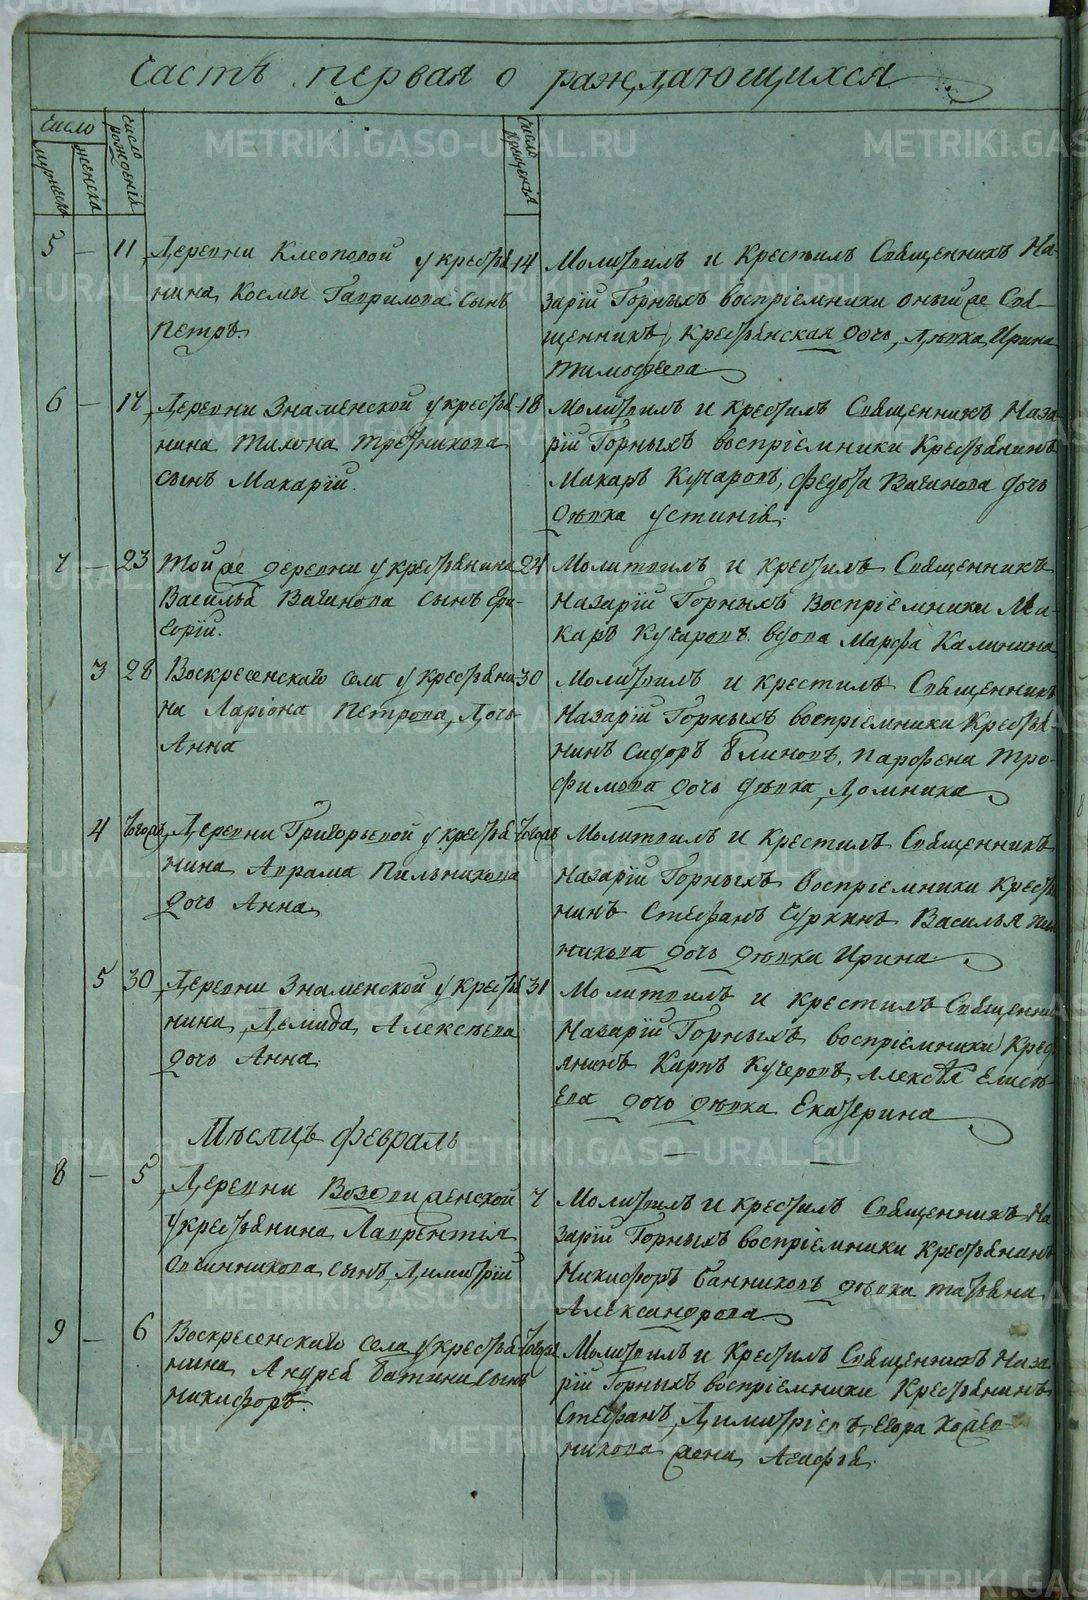 Часть первая о раждающихся
Число
мужеска
женска
Число рождения
Число крещения
5 — 11 Деревни Клеоповой у крестья
нина Космы Гаврилова сынъ
Петръ.
14 Молитвилъ и крестилъ Священникъ На-
зарiй Горныхъ воспрiемники оный же Свя-
щенникъ, крестьянская дочь, девка Ирина
Тимофеева.
6 — 17 Деревни Знаменской у крестья
нина Тихона Третникова
сынъ Макарiй.
18 Молитвилъ и крестилъ Священникъ Наза-
рiй Горныхъ воспрiемники Крестьянинъ
Макаръ Кучаровъ, Федота Вачинова дочь
девка Устинiя.
7 — 23 Той же деревни у крестьянина
Василья Вачинова сынъ Гри-
горiй.
24 Молитвилъ и крестилъ Священникъ
Назарiй Горныхъ Воспрiемники Ма-
каръ Кучаровъ вдова Марфа Калинина
3 28 Воскресенскаго села у крестьяни
на Ларiона Петрова, Дочь
Анна
30 Молитвилъ и крестилъ Священникъ
Назарiй Горныхъ воспрiемники Крестья-
нинъ Сидоръ Блиновъ, Парфена Тро-
фимова дочь девка, Домника
4 тогожъ Деревни Григорьевой у крестья
нина Аврама Пильникова
дочь Анна
тогожъ Молитвилъ и крестилъ Священникъ
Назарiй Горныхъ воспрiемники Крестья
нинъ Стефанъ Чуркинъ Василья Пиль
никова дочь девка Ирина
5 30 Деревни Знаменской у крестья
нина Демида Алексеева
дочь Анна
31 Молитвилъ и крестилъ Священни
Назарiй Горныхъ воспрiемники Крестья
янинъ Карпъ Кучеровъ, Алексея Елисе-
ева дочь девка Екатерина
Месяцъ февраль
8 — 5 Деревни Воздвиженской
у крестьянина Лаврентiя
Овчинникова сынъ Димитрiй
7 Молитвилъ и крестилъ Священникъ На
зарiй Горныхъ воспрiемники крестьянинъ
Никифоръ Банниковъ девка Татьяна
Александрова
9 — 6 Воскресенскаго села у крестья
нина Андрея сынъ
Никифоръ.
тогожъ Молитвилъ и крестилъ Священникъ Наза
рiй Горныхъ воспрiемники Крестьянинъ
Стефанъ Димитрiевъ, Егора
жена Агафья.
METRIKI.GASO-URAL.RU